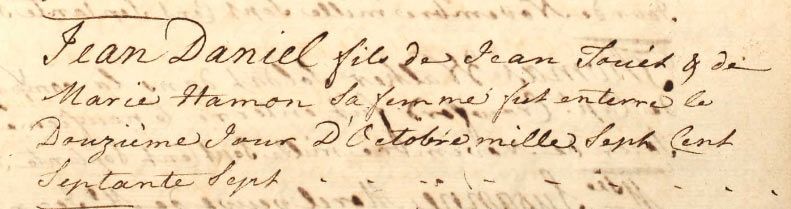 Jean Daniel fils de Jean Touët & de
Marie Hamon Sa femme fut enterre le
Douzième Jour D'Octobre mille Sept Cent
Septante Sept